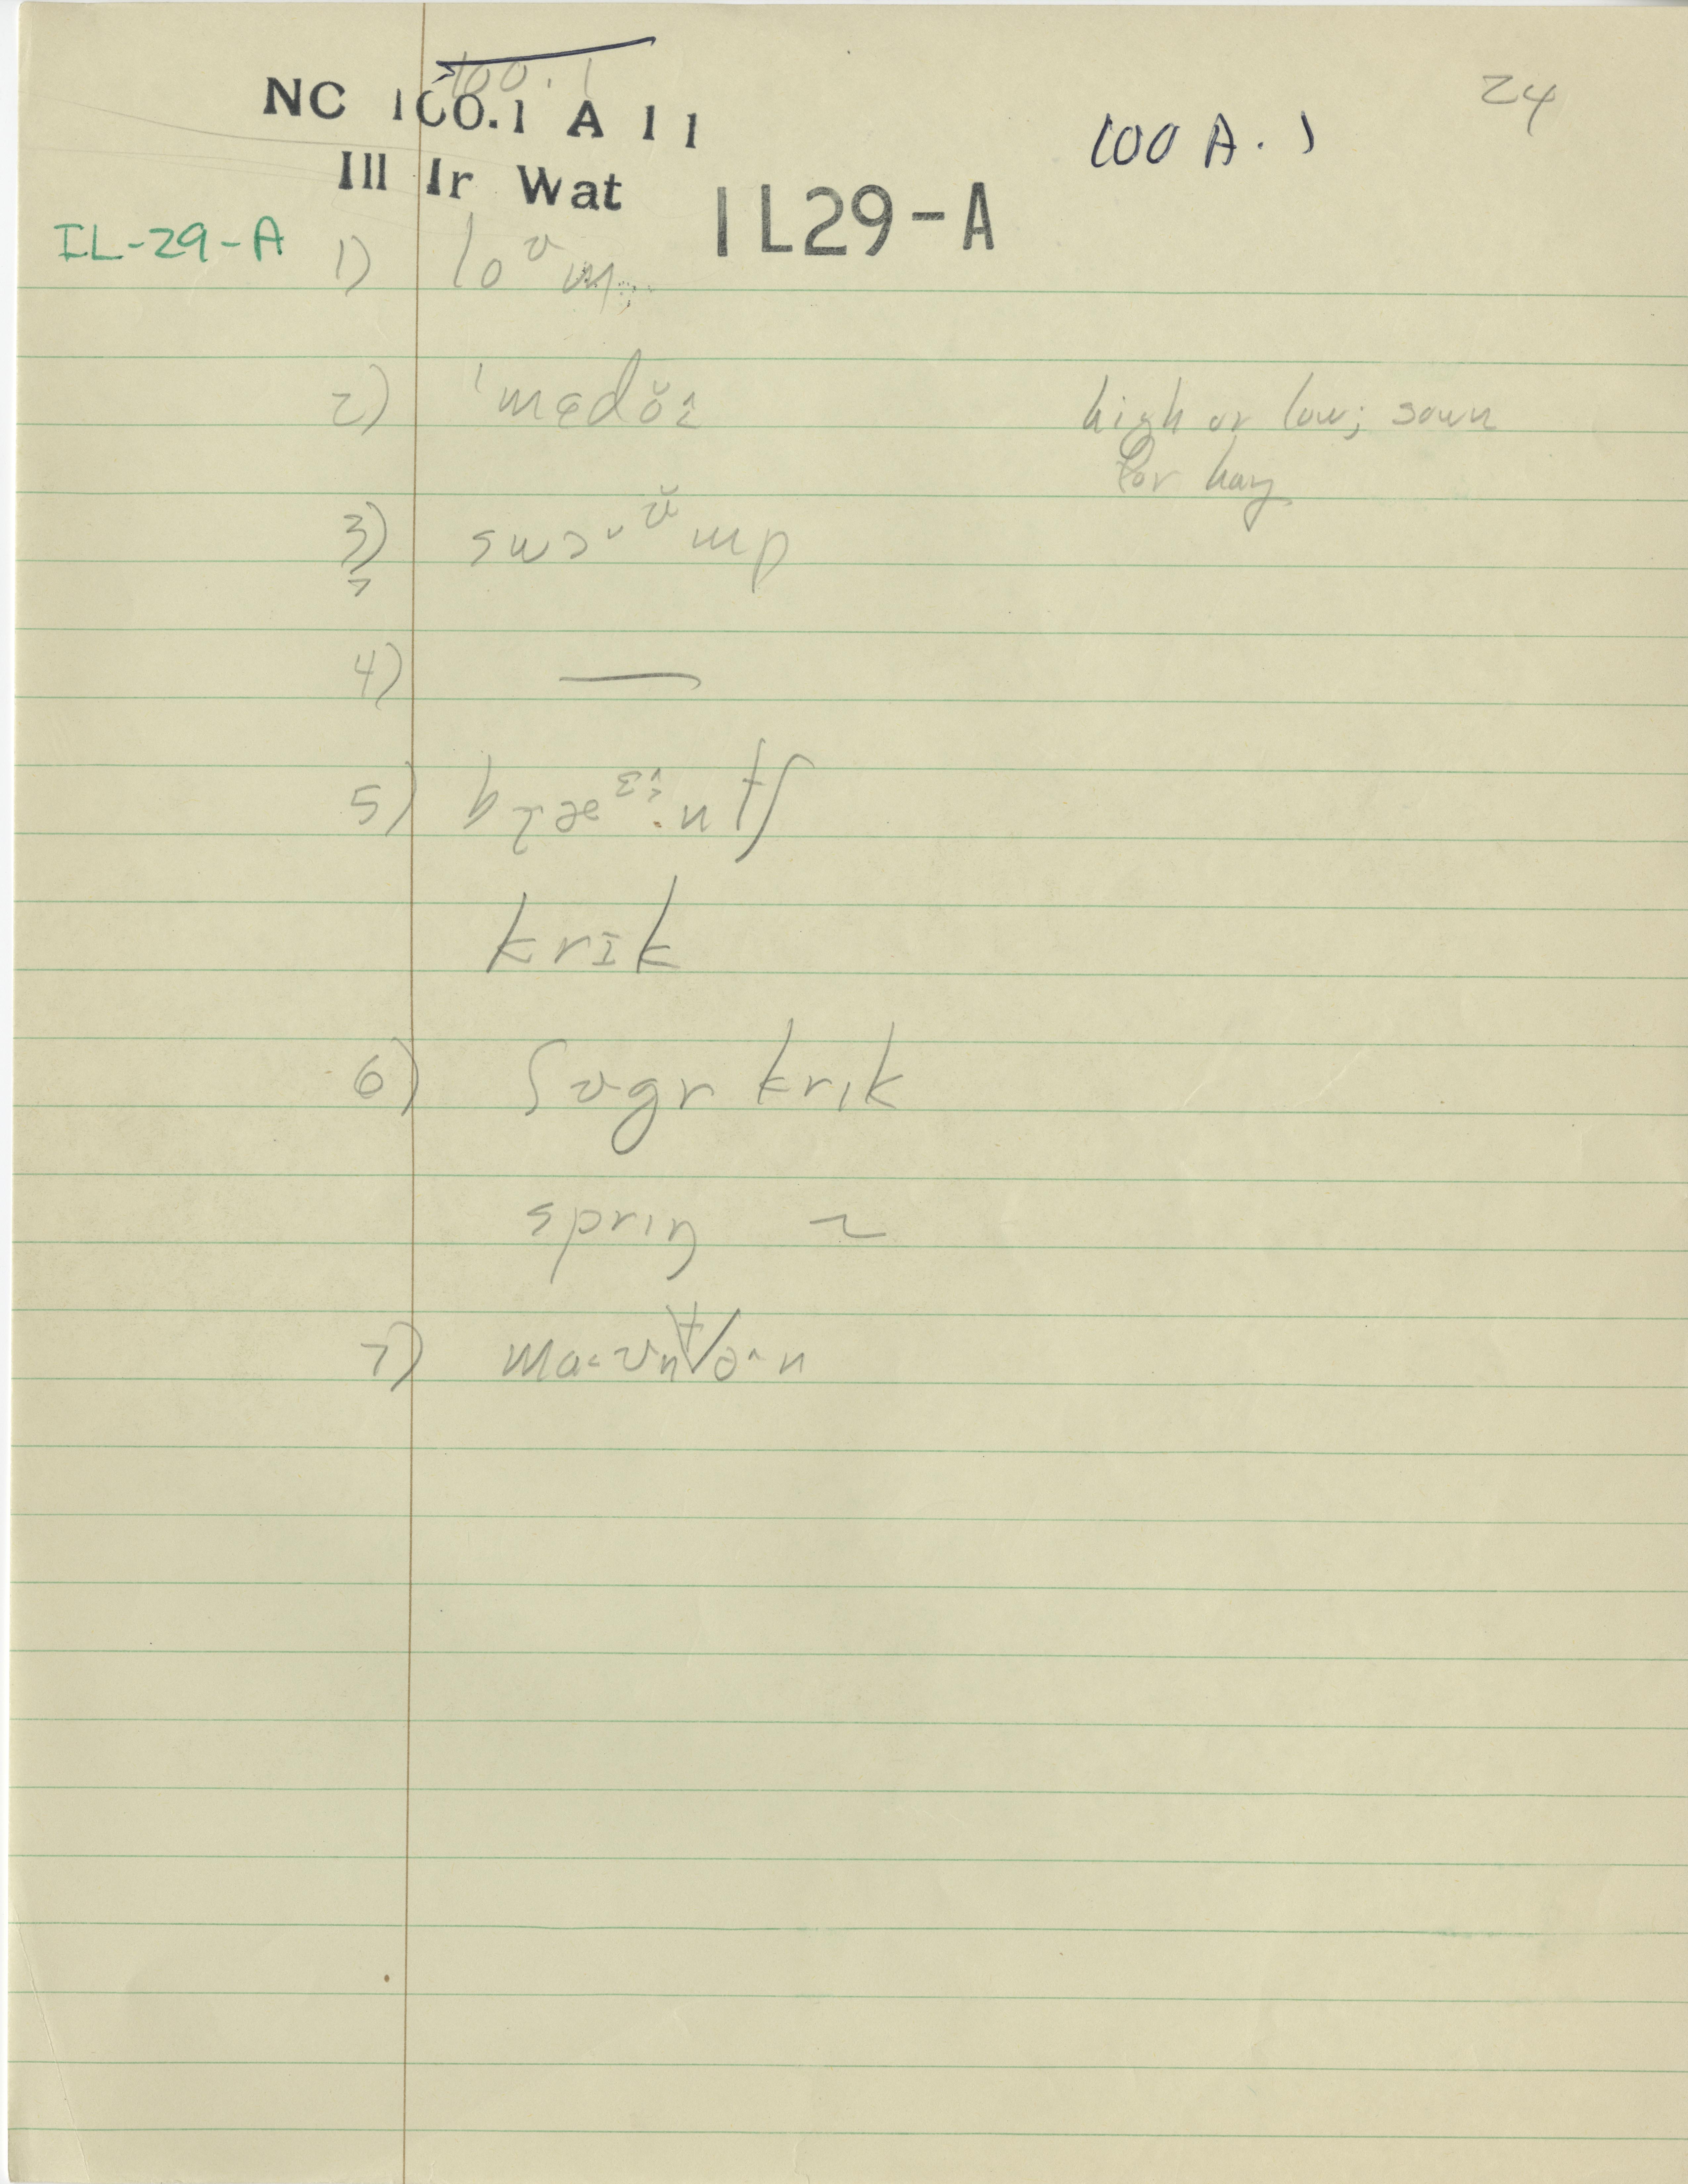 100.1
NC 100.1 A 11
24
100 A.1
Ill Ir Wat
IL29-A
IL-29-A
1) loᶷm
2) 'mɛdŏɪ̂ high or low; sown
for hay
3) swɔ˘ᶷ̆mp
4) —
5) bɽæᵋ^ɪ̂ntʃ
krɪk
6) ʃʊgr krɪk
sprɪŋ ~
7) ma˂ʊntə^n